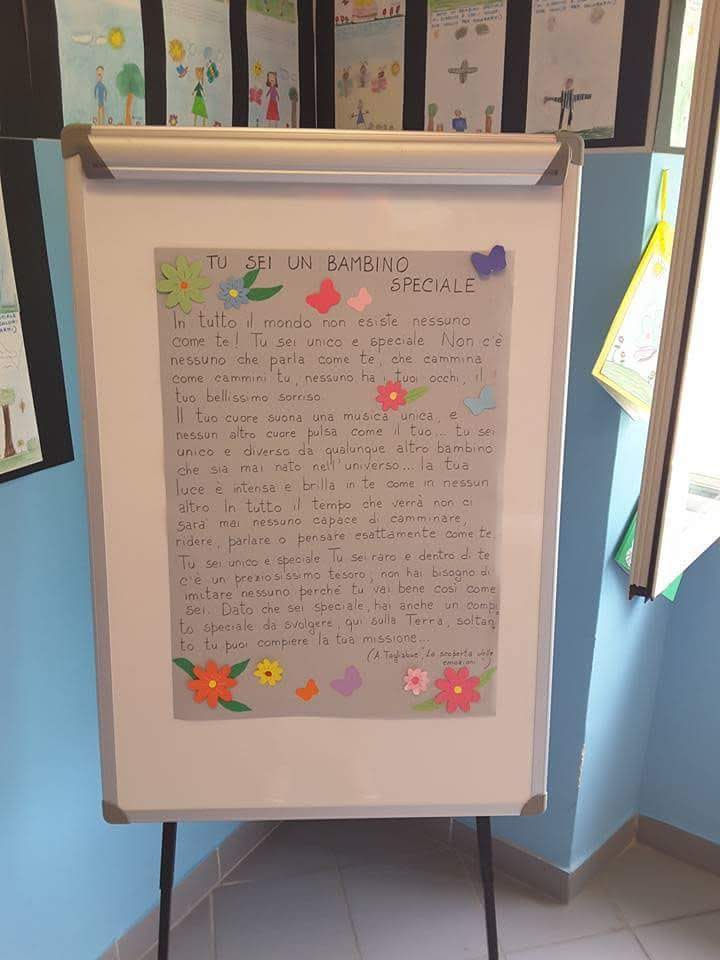 TU SEI UN BAMBINO
SPECIALE
In tutto il mondo non esiste nessuno
come te! Tu sei unico e speciale Non c'è
nessuno che parla come te, che cammina
come cammini tu, nessuno ha i tuoi occhi, il
tuo bellissimo sorriso.
Il tuo cuore suona una musica unica, e
nessun altro cuore pulsa come il tuo... tu sei
unico e diverso da qualunque altro bambino
che sia mai nato nell'universo... la tua
luce è intensa e brilla in te come in nessun
altro In tutto il tempo che verrà non ci
sarà mai nessuno capace di camminare,
ridere, parlare o pensare esattamente come te.
Tu sei unico e speciale Tu sei raro e dentro di te
c'è un preziosissimo tesoro; non hai bisogno di
imitare nessuno perché tu vai bene così come
sei. Dato che sei speciale, hai anche un compi
to speciale da svolgere, qui sulla Terra, soltan
to tu puoi compiere la tua missione...
(A. Tagliabue, La scoperta delle
emozioni)